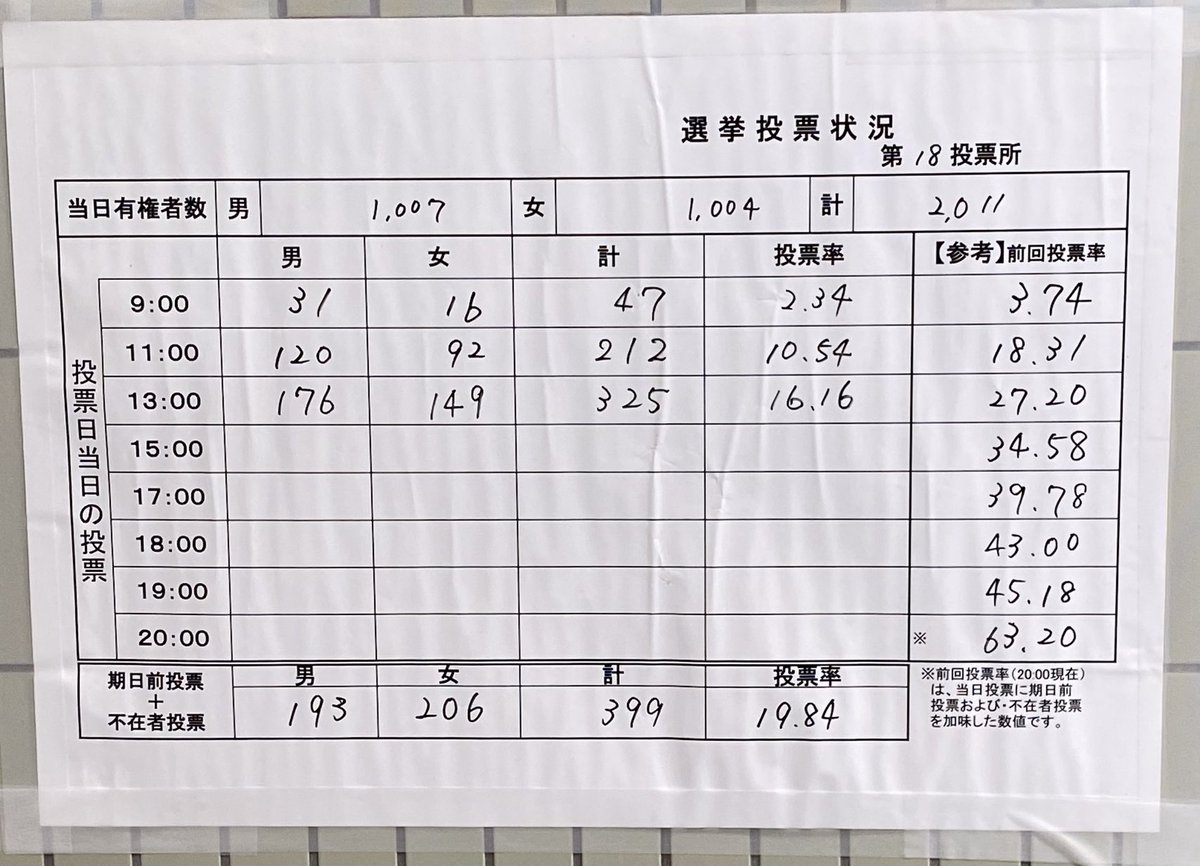 選挙投票状況
第18投票所
当日有権者数 男 1,007 女 1,004 計 2,011
男 女 計 投票率 【参考】前回投票率
投票日当日の投票
9:00 31 16 47 2.34 3.74
11:00 120 92 212 10.54 18.31
13:00 176 149 325 16.16 27.20
15:00 34.58
17:00 39.78
18:00 43.00
19:00 45.18
20:00 ※ 63.20
期日前投票
+
不在者投票
男 女 計 投票率
193 206 399 19.84
※前回投票率(20:00現在)
は、当日投票に期日前
投票および・不在者投票
を加味した数値です。